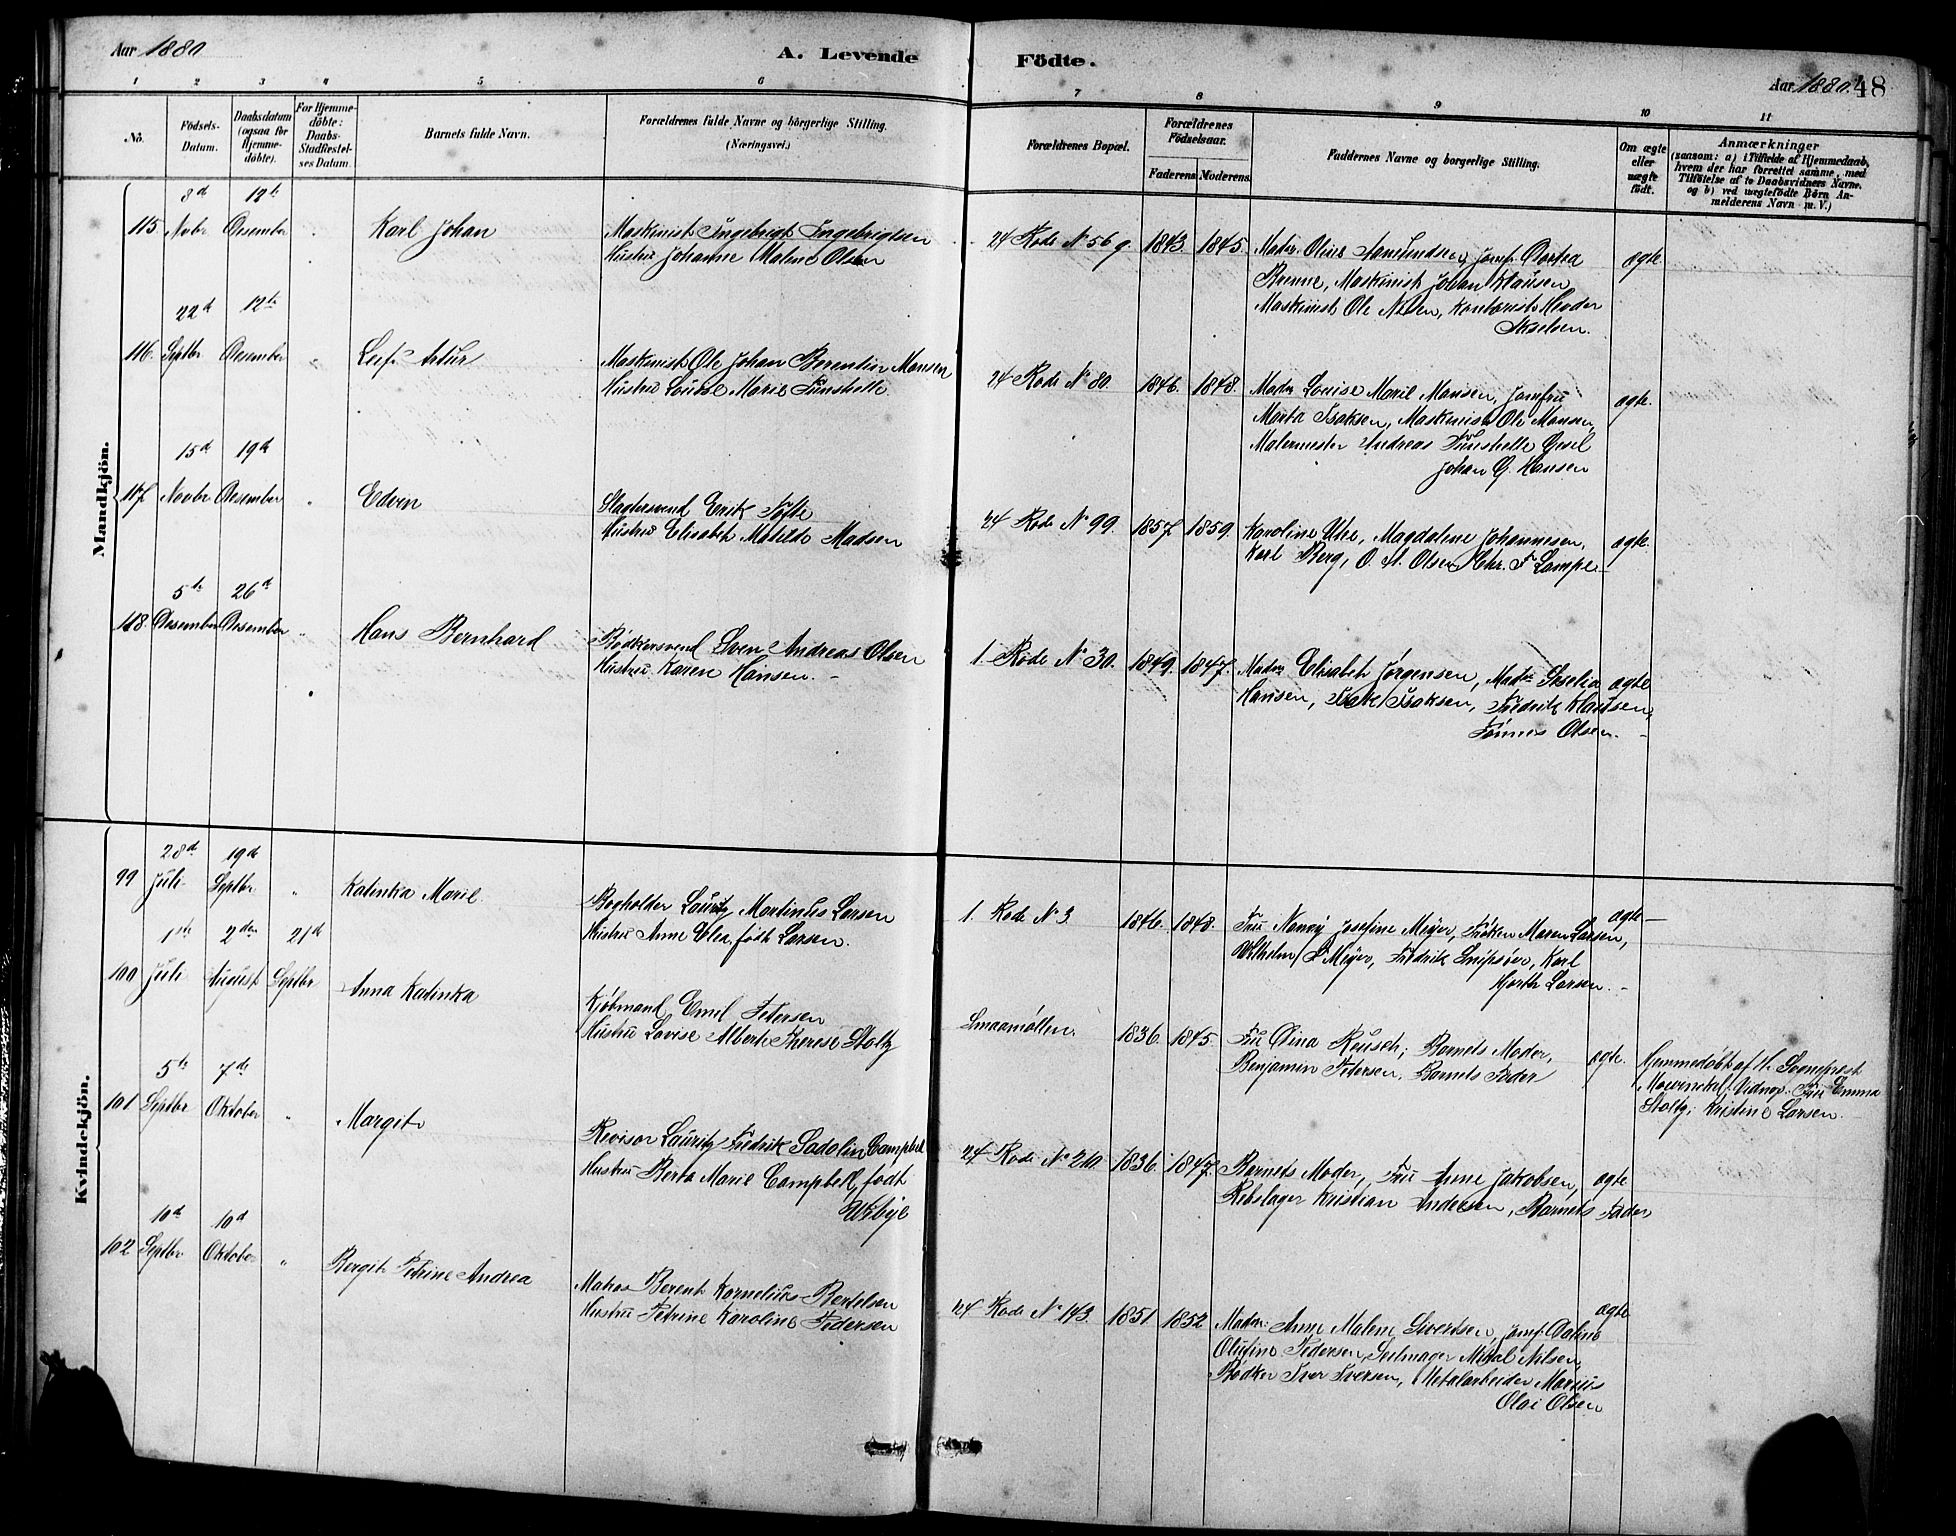 Aar 1880
A. Levende Födte.
Aar 1880. 48
1 2 3 4 5 6 7 8 9 10 11
No.
Födsels-
Datum.
Daabsdatum
(ogsaa for
Hjemme-
döbte).
For Hjemme-
döbte:
Daabs-
Stadfestel-
ses Datum.
Barnets fulde Navn.
Forældrenes fulde Navne og borgerlige Stilling.
(Næringsvei.)
Forældrenes Bopæl.
Forældrenes
Födselsaar.
Faderens Moderens.
Faddernes Navne og borgerlige Stilling.
Om ægte
eller
uægte
født.
Anmærkninger
(saasom: a) i Tilfælde af Hjemmedaab,
hvem der har forrettet samme, med
Tilföielse af to Daabsvidners Navne.
og b) ved uægtefödte Börn An-
melderens Navn m. V.)
Mandkjön.
3d 12te
115 Novbr Desember " Karl Johan
Maskinist Ingebrigt Ingebrigtsen
Hustru Johanne Malene Olsen
24 Rode No 56 g. 1843. 1845.
Mad. Oline Amundsen, Jomf. Dortea
Renne, Maskinist Johan Klausen
Maskinist Ole Nilsen, Kontorist Peder
Iskelsen.
ægte
22d 12te
116. Septbr Desember " Leif Artur
Maskinist Ole Johan Berentin Monsen
Hustru Louise Marie Tunshelle.
24 Rode No 80. 1846. 1848.
Madm Louise Marie Monsen, Jomfru
Marta Isaksen, Maskinist Ole Monsen,
Malermester Andreas Tunshelle Gesel
Johan G. Hansen
ægte.
15d 19d
117. Novbr Desember " Edven
Slagtersvend Erik Tøfte
Hustru Elisabet Matilde Madsen
24 Rode No 99. 1857. 1859.
Karoline Utne, Magdalene Johannesen,
Karl Berg, O. A. Olsen, Chr. F. Lampe
ægte.
5te 26d
118. Desember Desember " Hans Bernhard
Bødkersvend Sven Andreas Olsen
Hustru Karen Hansen.
1. Rode No 30. 1849. 1847.
Madm Elisabet Jørgensen, Madm Skselia
Hansen, Isak Isaksen, Fredrik Klausen,
Tønnes Olsen.
ægte
Kvindekjön.
28d 19d
99 Juli Septbr " Katinka Marie.
Bogholder Lauritz Martinius Larsen
Hustru Anne Elea, født Larsen.
1. Rode No 3. 1846. 1848.
Fru Nancy Josefine Meyer, Frøken Maren Larsen,
Wilhelm L Meyer, Fredrik Snipsøer, Karl
Hjorth Larsen.
ægte
1te 2den 21d
100 Juli August Septbr Anna Katinka
Kjøbmand Emil Petersen
Hustru Lovise Alberte Therese Stoltz
Smaamøllen. 1836. 1845.
Fru Dina Reusch, Barnets Moder,
Benjamin Petersen, Barnets Fader
ægte.
Hjemmedøbt af Hr Sogneprest
Mowinckel, Vidner: Fru Emma
Stoltz, Kristine Larsen.
5te 7de
101 Septbr Oktober " Margit
Revisor Lauritz Fredrik Sadolin Campbell
Hustru Berta Marie Campbell, født
Wibye
24 Rode No 210. 1836. 1847.
Barnets Moder, Fru Anne Jakobsen,
Rebslager Kristian Andersen, Barnets Fader
ægte
10d 10d
102 Septbr Oktober " Bergit Petrine Andrea
Matros Berent Kornelius Bertelsen
Hustru Petrine Karoline Pedersen
24 Rode No 143. 1851. 1852
Madm: Anne Malene Sivertsen, Jomf. Daline
Olufine Pedersen, Seilmager Mikal Nilsen,
Bødker Iver Iversen, Metalarbeider Marius
Olai Olsen
ægte